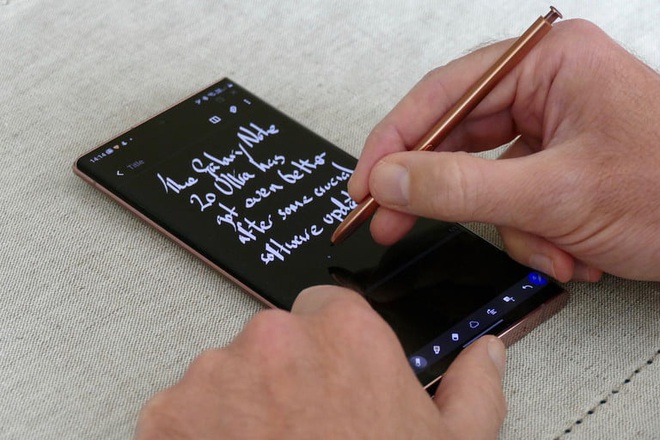 14:14
Title
The Galaxy Note
20 Ultra has
got even better
after some crucial
software updat